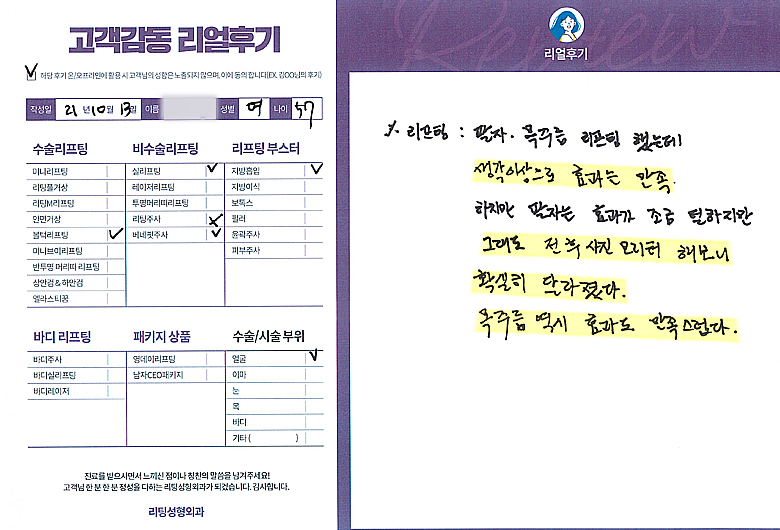 고객감동 리얼후기
해당 후기 온/오프라인에 활용 시 고객님의 성함은 노출되지 않으며, 이에 동의 합니다(EX. 김OO님의 후기)
작성일 21 년 10 월 13 일 이름 성별 여 나이 57
수술리프팅
미니리프팅
리팅풀거상
리팅M리프팅
안면거상
볼턱리프팅
미니브이리프팅
반투명 머리띠 리프팅
상안검 & 하안검
엘라스티꿈
비수술리프팅
실리프팅
레이저리프팅
투명머리띠리프팅
리팅주사
베네핏주사
리프팅 부스터
지방흡입
지방이식
보톡스
필러
윤곽주사
피부주사
바디 리프팅
바디주사
바디실리프팅
바디레이저
패키지 상품
영데이리프팅
남자CEO패키지
수술/시술 부위
얼굴
이마
눈
목
바디
기타 ( )
진료를 받으시면서 느끼신 점이나 칭찬의 말씀을 남겨주세요!
고객님 한 분 한 분 정성을 다하는 리팅성형외과가 되겠습니다. 감사합니다.
리팅성형외과
Review
리얼후기
리프팅 : 팔자. 목주름 리프팅 했는데
생각이상으로 효과는 만족.
하지만 팔자는 효과가 조금 덜하지만
그래도 전후 사진 모니터 해보니
확실히 달라졌다.
목주름 역시 효과도 만족스럽다.